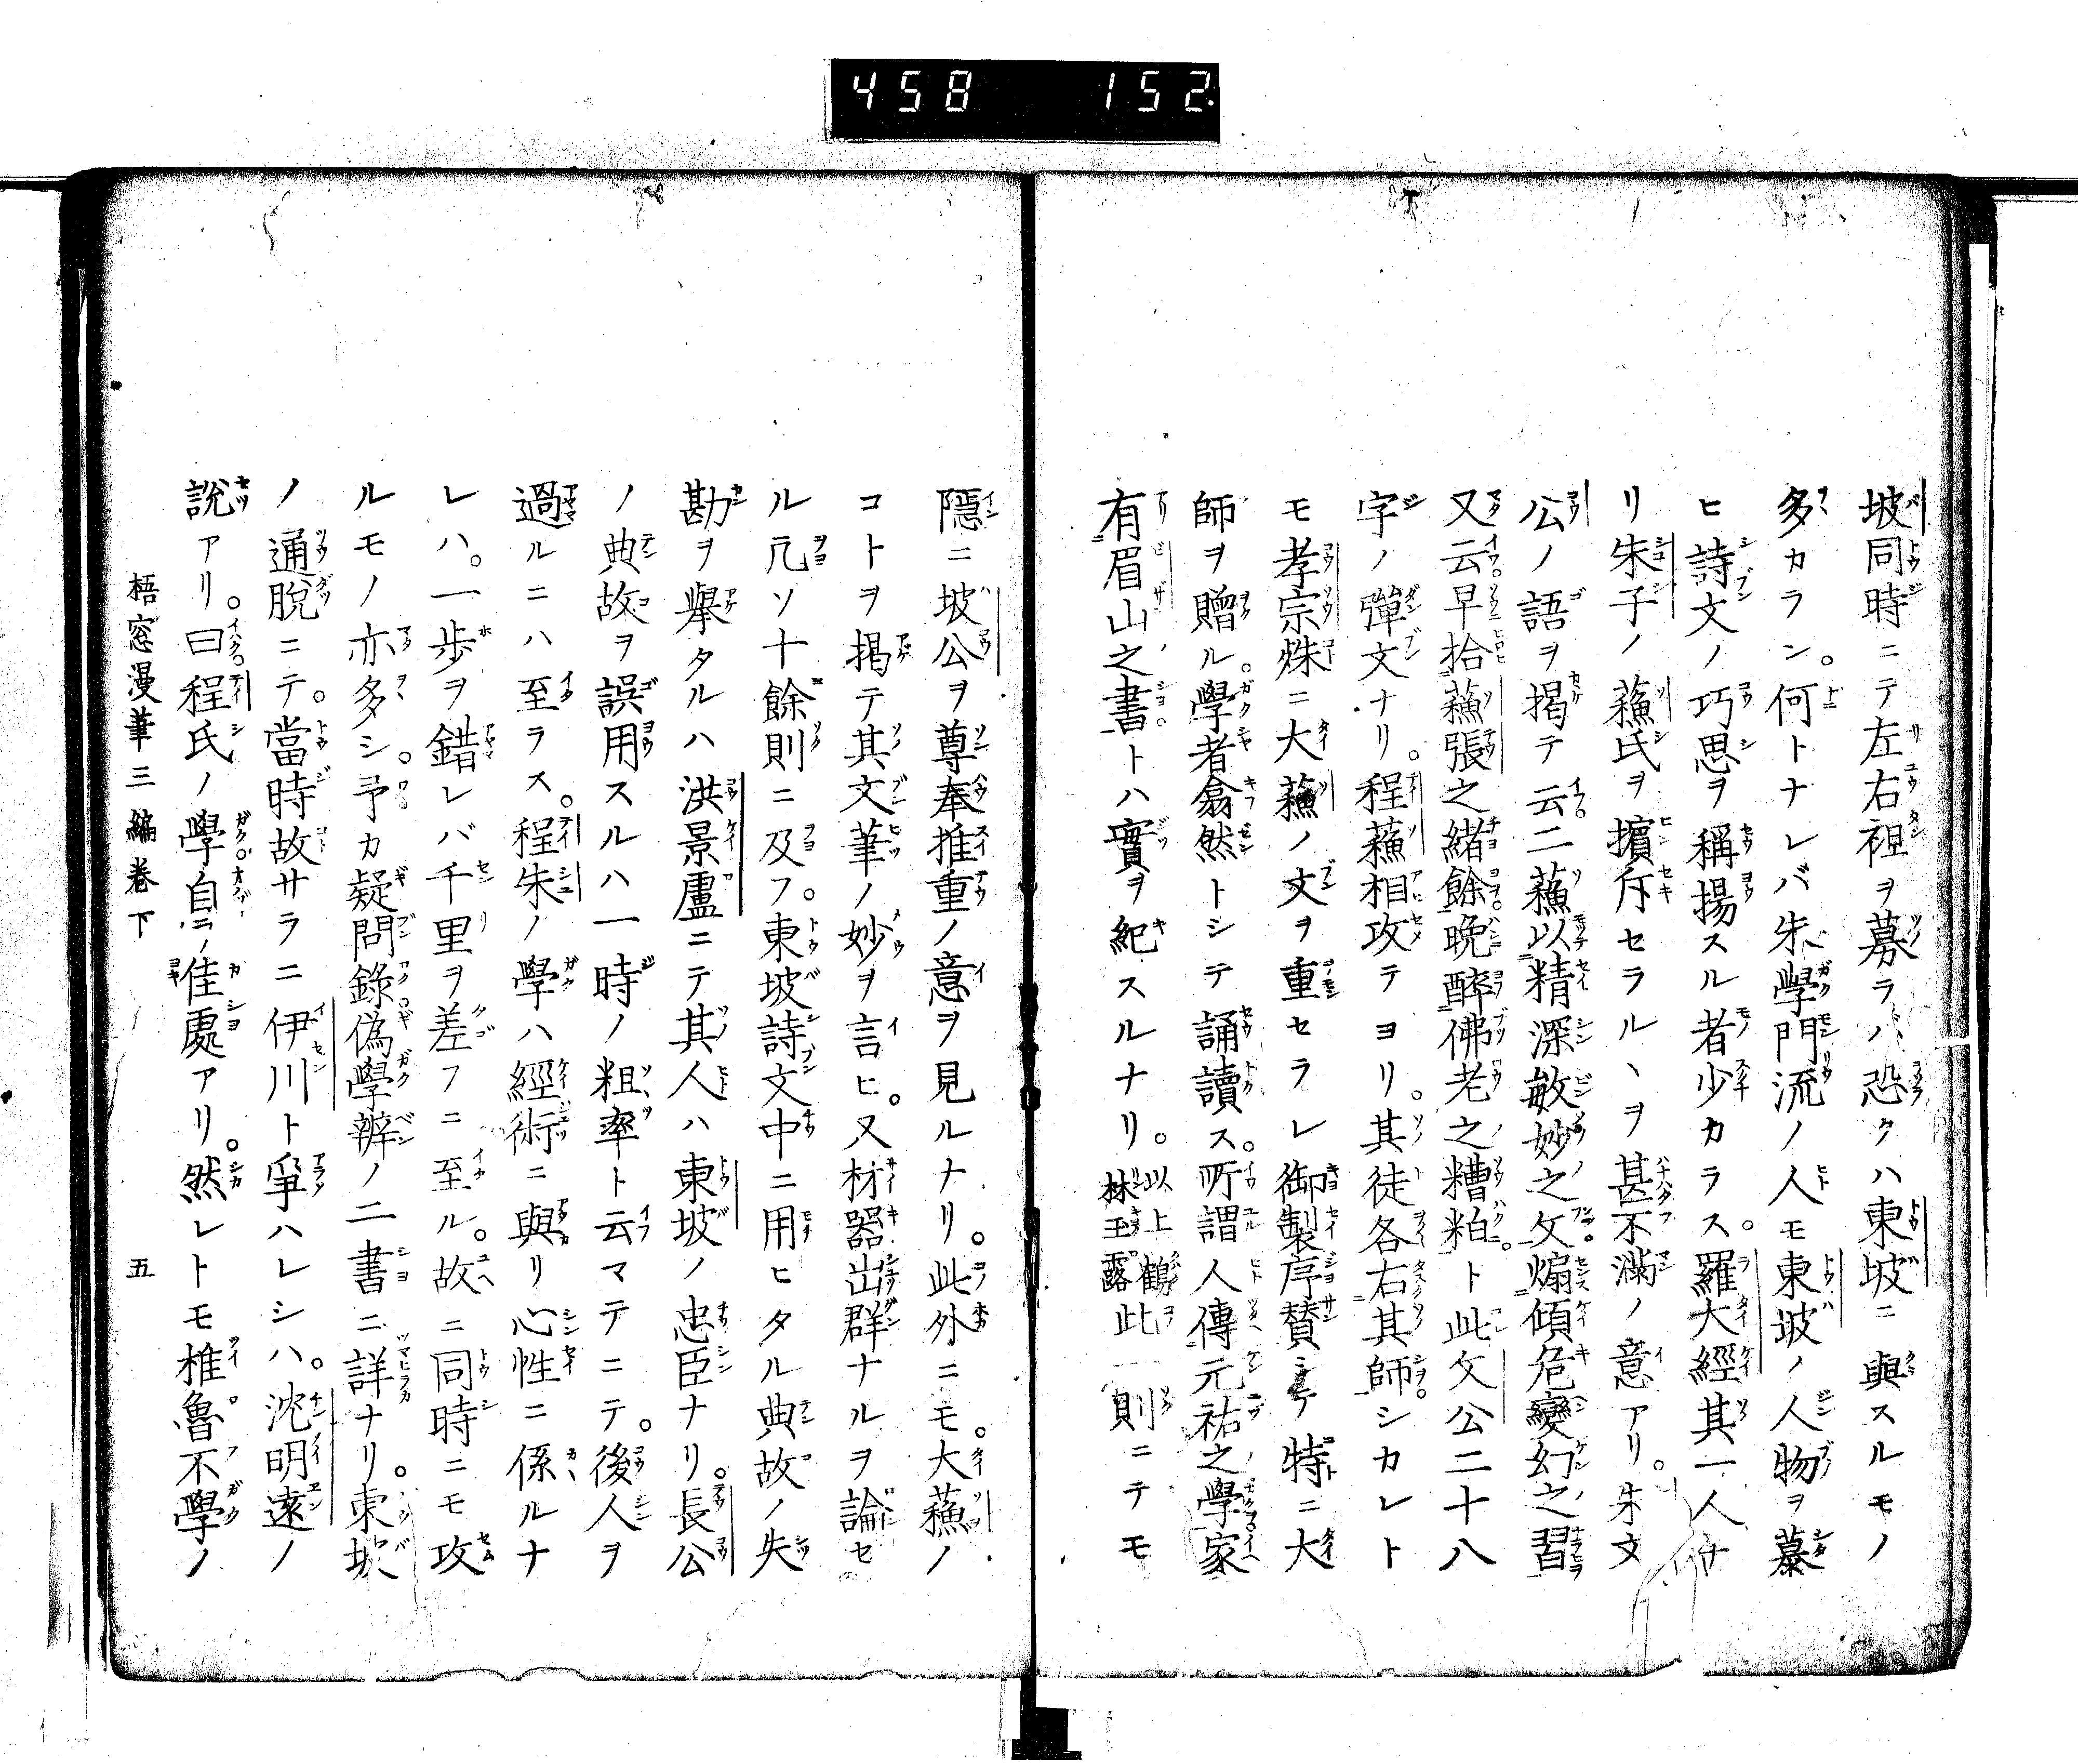 458 152
坡同時ニテ左右袒ヲ募ラハ恐クハ東坡ニ與スルモノ
多カラン。何トナレバ朱學門流ノ人モ東坡ノ人物ヲ慕
ヒ詩文ノ巧思ヲ稱揚スル者少カラス。羅大經其一人ナ
リ朱子ノ蘓氏ヲ擯斥セラルヽヲ甚不滿ノ意アリ。朱文
公ノ語ヲ揭テ云二蘓以精深敏妙之文煽傾危變幻之習
又云早拾蘓張之緒餘晩醉佛老之糟粕ト此文公二十八
字ノ彈文ナリ。程蘓相攻テヨリ。其徒各右其師。シカレト
モ孝宗殊ニ大蘓ノ文ヲ重セラレ御製序賛ニテ特ニ大
師ヲ贈ル。學者翕然トシテ誦讀ス。所謂人傳元祐之學家
有眉山之書。トハ實ヲ紀スルナリ。以上鶴林玉露此一則ニテモ
隱ニ坡公ヲ尊奉推重ノ意ヲ見ルナリ。此外ニモ。大蘓ノ
コトヲ揭テ其文筆ノ妙ヲ言ヒ。又材器出群ナルヲ論セ
ル凡ソ十餘則ニ及フ。東坡詩文中ニ用ヒタル典故ノ失
勘ヲ擧タルハ洪景盧ニテ其人ハ東坡ノ忠臣ナリ。長公
ノ典故ヲ誤用スルハ一時ノ粗率ト云マテニテ。後人ヲ
過ルニハ至ラス。程朱ノ學ハ經術ニ與リ心性ニ係ルナ
レハ。一歩ヲ錯レバ千里ヲ差フニ至ル。故ニ同時ニモ攻
ルモノ亦多シ。予カ疑問錄僞學辨ノ二書ニ詳ナリ。東坡
ノ通脫ニテ。當時故サラニ伊川ト爭ハレシハ。沈明遠ノ
說アリ。曰程氏ノ學自ニノ佳處アリ。然レトモ椎魯不學ノ
梧窓漫筆三編卷下 五